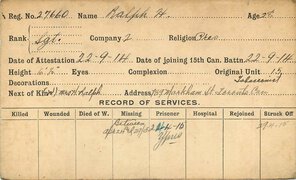 Reg. No. 27660 Name Ralph H. Age
Rank Sgt. Company 2 Religion Pres
Date of Attestation 22-9-14 Date of joining 15th Can. Battn. 22-9-14
Height Eyes Complexion Original Unit 15
Decorations
Next of Kin Mrs H Ralph Address 159 Markham St Toronto Can
RECORD OF SERVICES.
Killed Wounded Died of W. Missing Prisoner Hospital Rejoined Struck Off
Between
Ypres